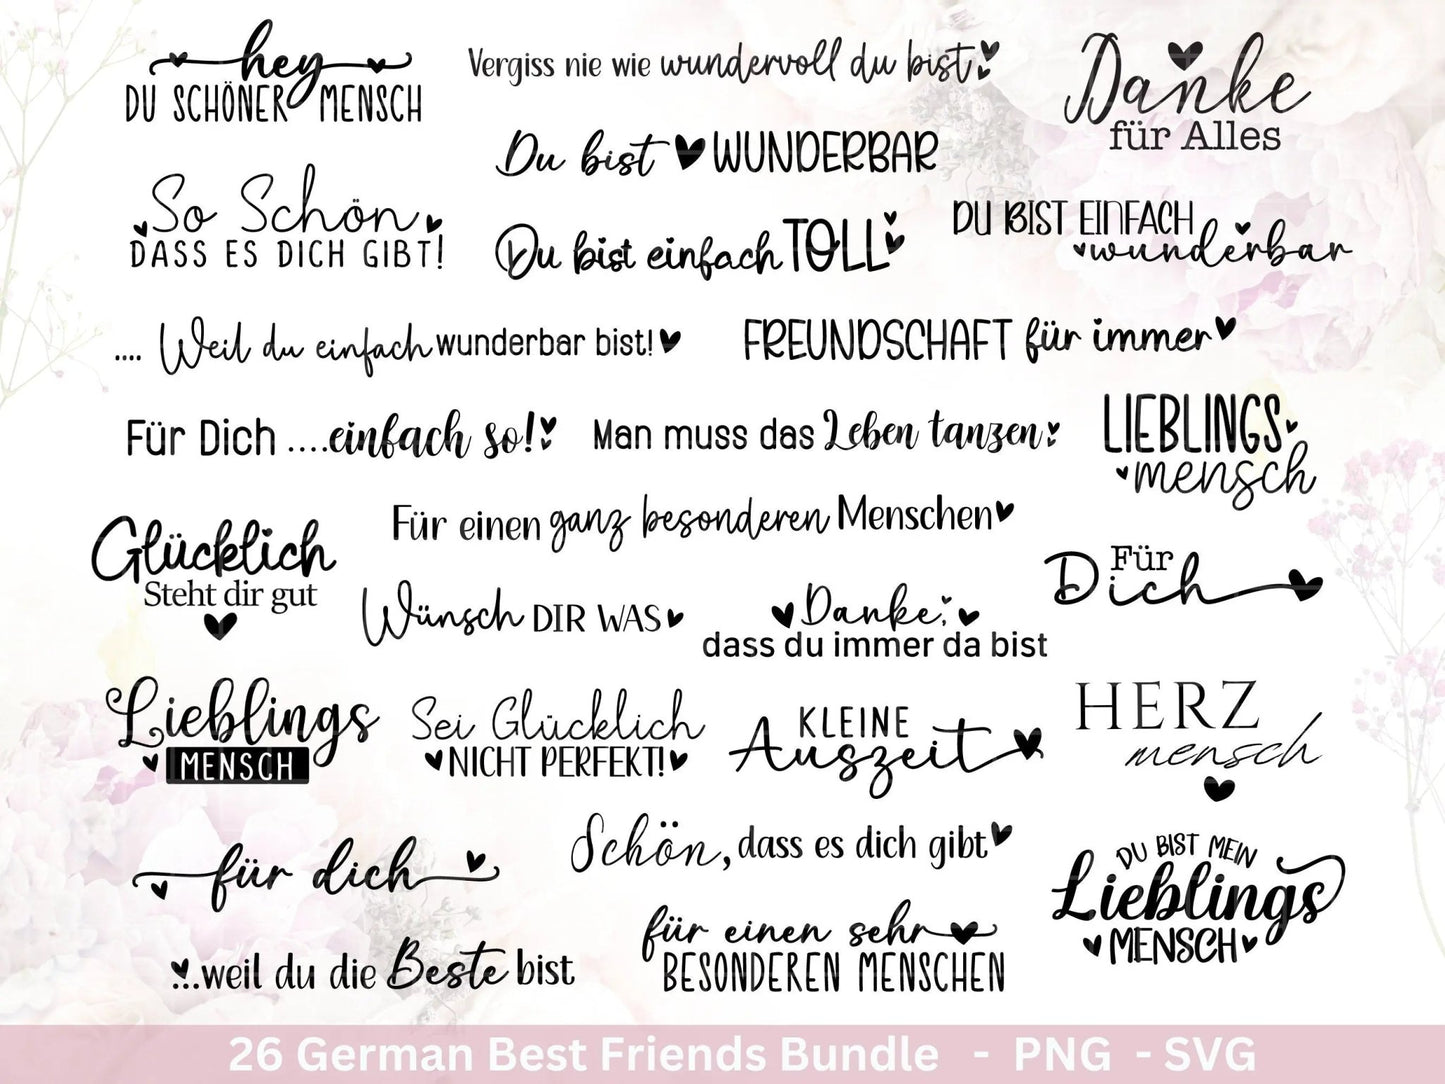 hey
DU SCHÖNER MENSCH
Vergiss nie wie wundervoll du bist
Danke
für Alles
Du bist WUNDERBAR
So Schön
DASS ES DICH GIBT!
Du bist einfach TOLL
DU BIST EINFACH
wunderbar
.... Weil du einfach wunderbar bist!
FREUNDSCHAFT für immer
Für Dich ....einfach so!
Man muss das Leben tanzen
LIEBLINGS
mensch
Für einen ganz besonderen Menschen
Glücklich
Steht dir gut
Für
Dich
Wünsch DIR WAS
Danke,
dass du immer da bist
Lieblings
MENSCH
Sei Glücklich
NICHT PERFEKT!
KLEINE
Auszeit
HERZ
mensch
für dich
Schön, dass es dich gibt
DU BIST MEIN
Lieblings
MENSCH
...weil du die Beste bist
für einen sehr
BESONDEREN MENSCHEN
26 German Best Friends Bundle - PNG - SVG